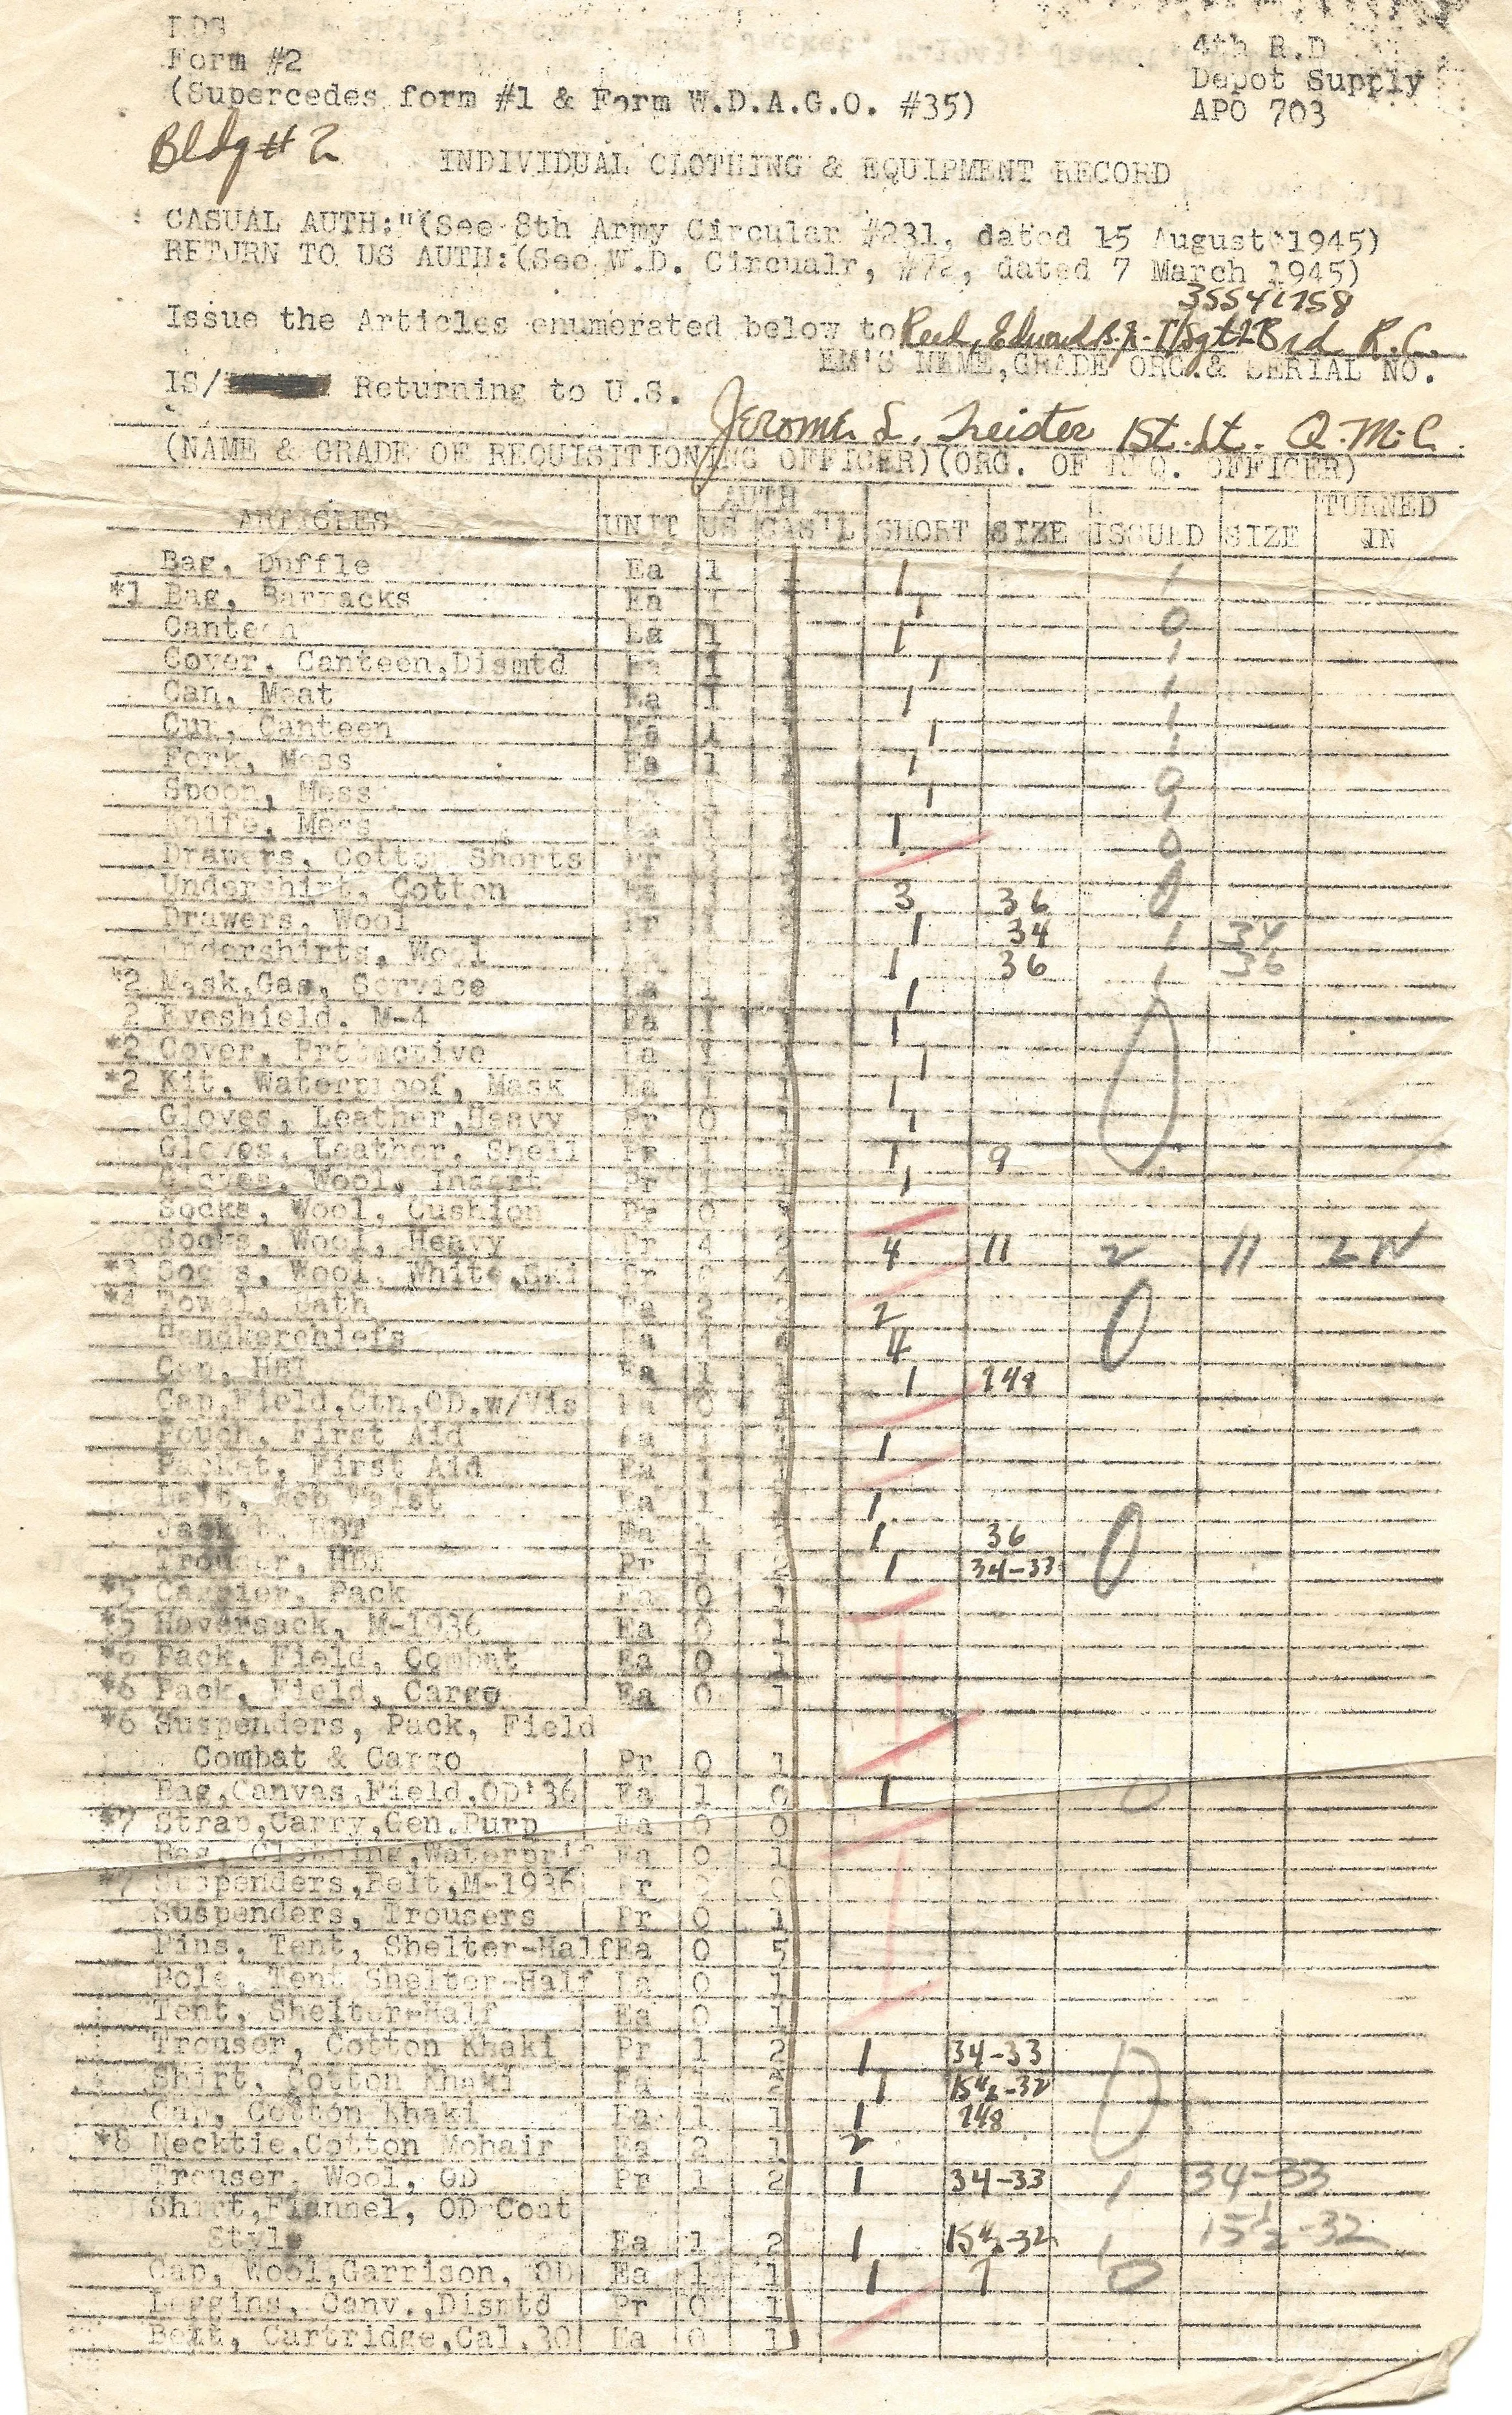 Form #2
(Supercedes form #1 & Form W.D.A.G.O. #35)
4th R.D
Depot Supply
APO 703
Bldg # 2
INDIVIDUAL CLOTHING & EQUIPMENT RECORD
CASUAL AUTH:"(See 8th Army Circular #231, dated 15 August 1945)
RETURN TO US AUTH:(See W.D. Circualr, #72, dated 7 March 1945)
Issue the Articles enumerated below to
EM'S NAME,GRADE ORG.& SERIAL NO.
IS/ Returning to U.S.
Jerome L. 1st. Lt. Q.M.C.
(NAME & GRADE OF REQUISITIONING OFFICER)(ORG. OF REQ. OFFICER)
ARTICLES UNIT AUTH US CAS'L SHORT SIZE ISSUED SIZE TURNED IN
Bag, Duffle Ea 1 1
*1 Bag, Barracks Ea 1 1
Canteen Ea 1 1
Cover, Canteen,Dismtd Ea 1 1
Can, Meat Ea 1 1
Cup, Canteen Ea 1 1
Fork, Mess Ea 1 1
Spoon, Mess 1
Knife, Mess 1
Drawers, Cotton Shorts Pr
Undershirt, Cotton 3 36
Drawers, Wool Pr 1 34 1 34
Undershirts, Wool 1 36 1 36
*2 Mask,Gas, Service 1
2 Eyeshield, M-4 Ea 1 1
*2 Cover, Protective Ea 1 1
*2 Kit, Waterproof, Mask Ea 1 1 1
Gloves, Leather,Heavy Pr 0 1 1
Gloves, Leather, Shell Pr 1 1 9
Gloves, Wool, Insert Pr 1 1
Socks, Wool, Cushion Pr 0
Socks, Wool, Heavy Pr 4 4 11 2 11
*3 Socks, Wool, White,Ski Pr
*4 Towel, Bath Ea 2 2
Handkerchiefs Ea 4 4
Cap, HBT Ea 1 1
Cap,Field,Ctn,OD,w/Vis Ea 0
Pouch, First Aid Ea 1
Packet, First Aid Ea 1
Belt, Web Waist Ea 1 1
Jacket, HBT Ea 1 1 36 0
Trouser, HBT Pr 1 1 34-33
*5 Carrier, Pack Ea 0 1
*5 Haversack, M-1936 Ea 0 1
*6 Pack, Field, Combat Ea 0 1
*6 Pack, Field, Cargo Ea 0 1
*6 Suspenders, Pack, Field
Combat & Cargo Pr 0 1
Bag,Canvas,Field,OD'36 Ea 1 0 1 0
*7 Strap,Carry,Gen.Purp Ea 0 0
Bag, Clothing,Waterprf Ea 0 1
*7 Suspenders,Belt,M-1936 Pr
Suspenders, Trousers Pr 0 1
Pins, Tent, Shelter-Half Ea 0 5
Pole, Tent Shelter-Half Ea 0 1
Tent, Shelter-Half Ea 0 1
Trouser, Cotton Khaki Pr 1 2 1 34-33
Shirt, Cotton Khaki Ea 1 2 1 15½-32
Cap, Cotton Khaki Ea 1 1 1
*8 Necktie,Cotton Mohair Ea 2 1 2
Trouser, Wool, OD Pr 1 2 1 34-33 1 34-33
Shirt,Flannel, OD Coat
Style Ea 1 2 1 15½-32 1 15½-32
Cap, Wool,Garrison, OD Ea 1 1 1 7 0
Leggins, Canv.,Dismtd Pr 0 1
Belt, Cartridge,Cal.30 Ea 0 1